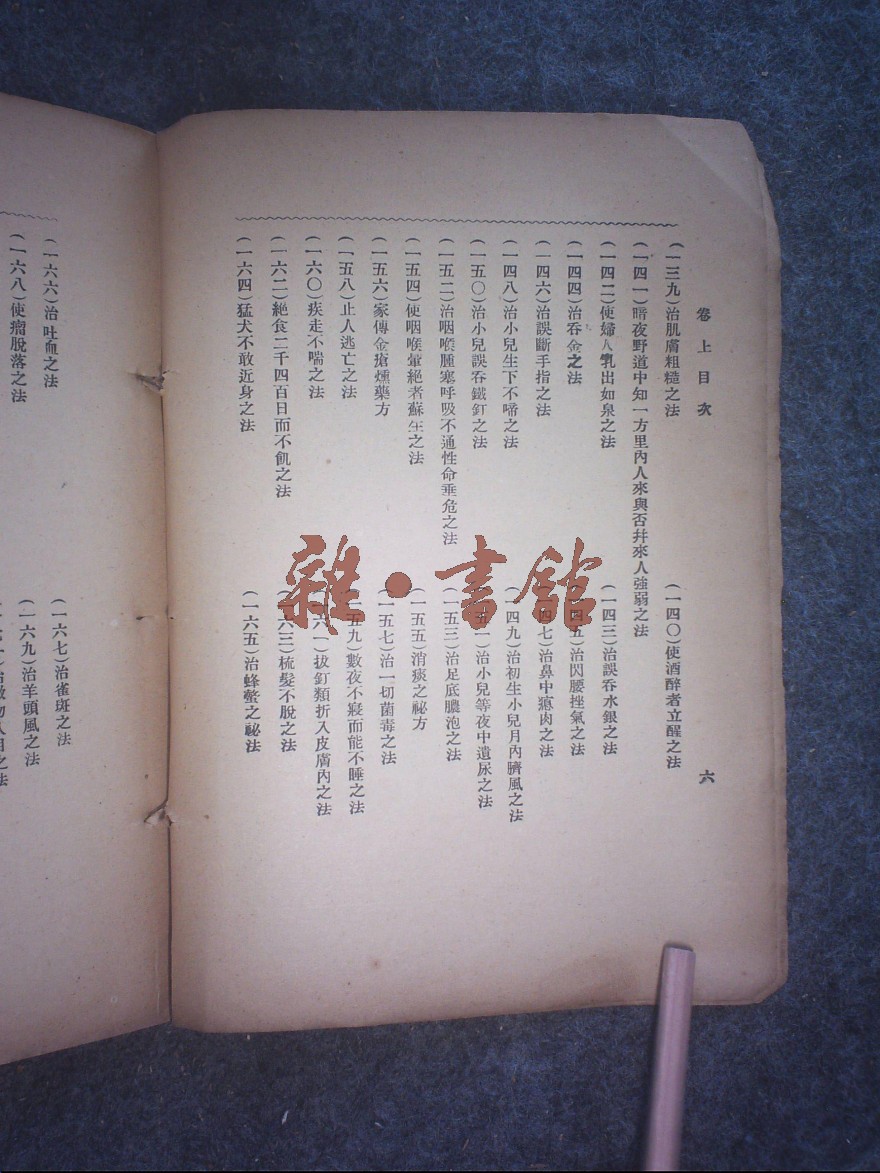 卷上目次
六
(一三九)治肌膚粗糙之法
(一四〇)使酒醉者立醒之法
(一四一)暗夜野道中知一方里內人來與否幷來人強弱之法
(一四二)使婦人乳出如泉之法
(一四三)治誤吞水銀之法
(一四四)治吞金之法
(一四五)治閃腰挫氣之法
(一四六)治誤斷手指之法
(一四七)治鼻中瘜肉之法
(一四八)治小兒生下不啼之法
(一四九)治初生小兒月內臍風之法
(一五〇)治小兒誤吞鐵釘之法
(一五一)治小兒等夜中遺尿之法
(一五二)治咽喉腫塞呼吸不通性命垂危之法
(一五三)治足底膿泡之法
(一五四)使咽喉暈絕者蘇生之法
(一五五)消痰之祕方
(一五六)家傳金瘡燻藥方
(一五七)治一切菌毒之法
(一五八)止人逃亡之法
(一五九)數夜不寢而能不睡之法
(一六〇)疾走不喘之法
(一六一)拔釘類折入皮膚內之法
(一六二)絕食二千四百日而不飢之法
(一六三)梳髮不脫之法
(一六四)猛犬不敢近身之法
(一六五)治蜂螫之祕法
(一六六)治吐血之法
(一六七)治雀斑之法
(一六八)使瘤脫落之法
(一六九)治羊頭風之法
雜·書館